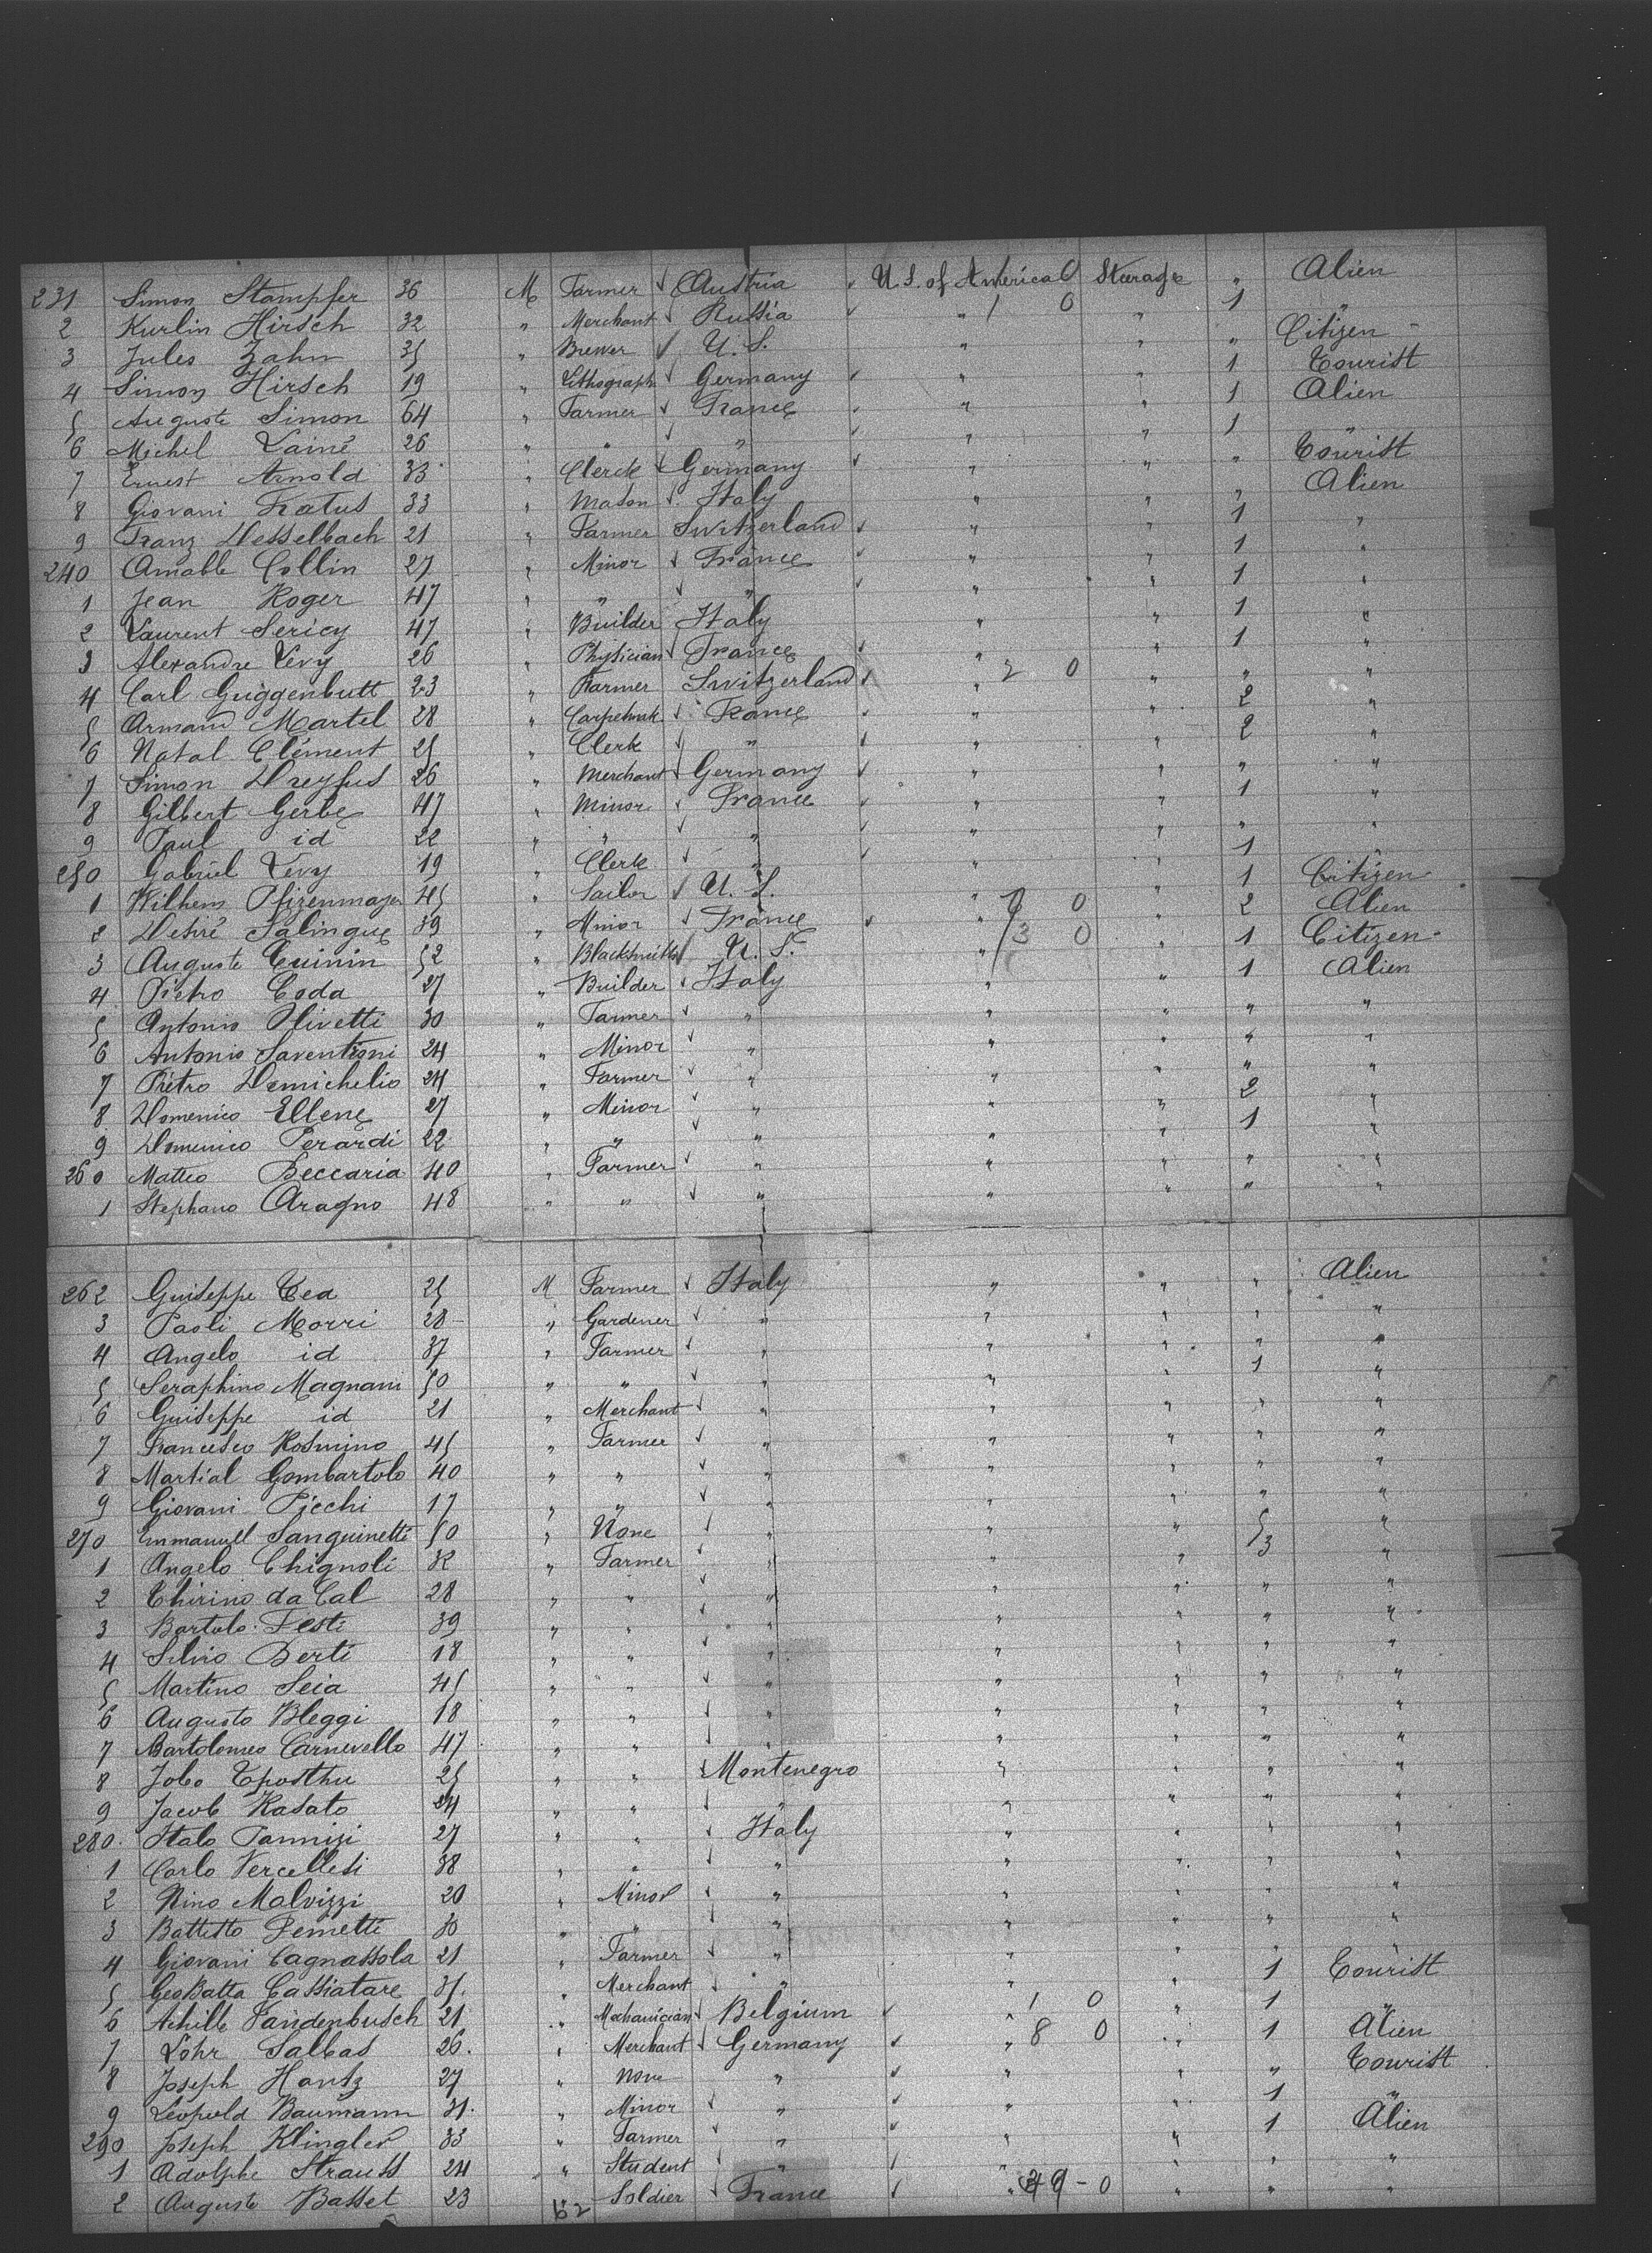 231 Simon Stampfer 36 M Farmer Austria U.S. of America 0 Steerage " Alien
2 Kurlin Hirsch 32 " Merchant Russia " 1 0 " 1 "
3 Jules Zahn 35 " Brewer U.S. " " " Citizen -
4 Simon Hirsch 19 " Lithograph Germany " " 1 Tourist
5 Auguste Simon 64 " Farmer France " " 1 Alien
6 Michel Lainé 26 " " " " " 1 "
7 Ernest Arnold 33 " Clerck Germany " " " Tourist
8 Giovani Ratus 33 " Mason Italy " " " Alien
9 Franz Hesselbach 21 " Farmer Switzerland " " 1 "
240 Amable Collin 27 " Minor France " " 1 "
1 Jean Roger 47 " " " " " 1 "
2 Laurent Sericy 47 " Builder Italy " " 1 "
3 Alexandre Levy 26 " Physician France " " 1 "
4 Carl Guggenbutt 23 " Farmer Switzerland " 2 0 " " "
5 Armand Martel 28 " France " " 2 "
6 Natal Clément 25 " Clerk " " " 2 "
7 Simon Dreyfus 26 " Merchant Germany " " " "
8 Gilbert Gerbe 47 " Minor France " " 1 "
9 Paul id 22 " " " " " " "
250 Gabriel Levy 19 " Clerk " " " 1 "
1 Wilhem Pfizenmayer 45 " Sailor U.S. " " 1 Citizen
2 Desiré Salingue 39 " Minor France " 0 " 2 Alien
3 Auguste Cuinin 52 " Blacksmith U.S. " 3 0 " 1 Citizen -
4 Pietro Coda 27 " Builder Italy " " 1 Alien
5 Antonio Olivetti 30 " Farmer " " " " "
6 Antonio Saventioni 24 " Minor " " " " "
7 Pietro Demichelio 24 " Farmer " " " " "
8 Domenico Ellene 27 " Minor " " " 2 "
9 Domenico Perardi 22 " " " " " 1 "
260 Matteo Beccaria 40 " Farmer " " " " "
1 Stephano Aragno 48 " " " " " " "
262 Guiseppe Cea 25 M Farmer Italy " " " Alien
3 Paoli Morri 28 - " Gardener " " " " "
4 Angelo id 37 " Farmer " " " " "
5 Seraphino Magnani 50 " " " " " 1 "
6 Guiseppe id 21 " Merchant " " " " "
7 Francesco Rosmino 45 " Farmer " " " " "
8 Martial Gombartolo 40 " " " " " " "
9 Giovani Picchi 17 " " " " " " "
270 Emmanuell Sanguinetti 50 " None " " " 5 "
1 Angelo Chignoli 32 " Farmer " " " 3 "
2 Chirino da Cal 28 " " " " " " "
3 Bartolo Festi 39 " " " " " " "
4 Silvio Berti 18 " " " " " " "
5 Martino Seia 45 " " " " " " "
6 Augusto Bleggi 18 " " " " " " "
7 Bartolomeo Carnevello 47 " " " " " " "
8 Jobo Tposthu 25 " " Montenegro " " " "
9 Jacob Rasato 24 " " " " " " "
280 Italo Pannizi 27 " " Italy " " " "
1 Carlo Vercellesi 38 " " " " " " "
2 Nino Malvizzi 20 " Minor " " " " "
3 Battisto Pemetti 30 " " " " " " "
4 Giovani Cagnassola 21 " Farmer " " " " "
5 GeoBatta Cassiatare 31 " Merchant " " " 1 Tourist
6 Achille Vandenbusch 21 " Mechanician Belgium " 1 0 " 1 "
7 Löhr Salbas 26 " Merchant Germany " 8 0 " 1 Alien
8 Joseph Hantz 27 " None " " " " Tourist
9 Léopold Baumann 31 " Minor " " " 1 "
290 Joseph Klingler 33 " Farmer " " " 1 Alien
1 Adolphe Strauss 24 " Student " " " " "
2 Auguste Basset 23 62 Soldier France " 49 - 0 " " "